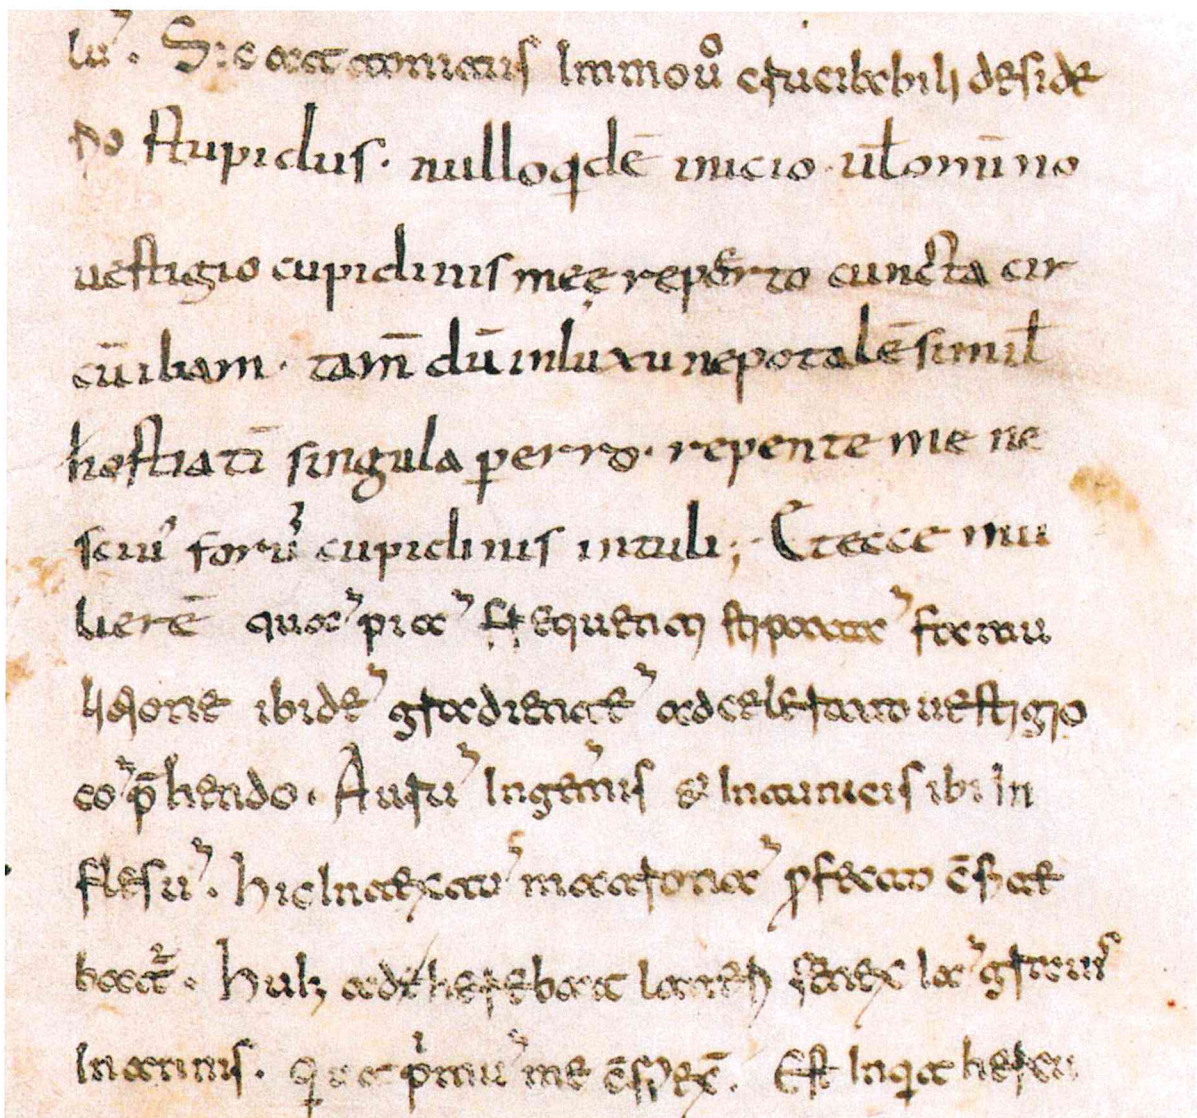 lũ. Sic attonitus Immouo᷒ cruciabili deside
rio stupidus. nulloqdē inicio. uƚomīno
uestigio cupidinis meę reperto cuncta cir
cūibam. tam̄ dū inluxu nepotalē simiƚ
hostiatī singula ꝑerro. repente me ne
sciu᾽ forū cupidinis intuli; Etecce mu
lierē quã piã frequenti stipatã famu
litione ibidẽ gradientẽ adceleratouestigio
cõp̄hendo. Aurũ Ingẽmis et Intunicis ibi In
flexũ. hic Intextũ matronã ꝓfecto c̄fite
batᷣ. huius adherebat lateri senex iã grauis
Inannis. qui ut primũ me c̄spex̄. Est Inquit hercu